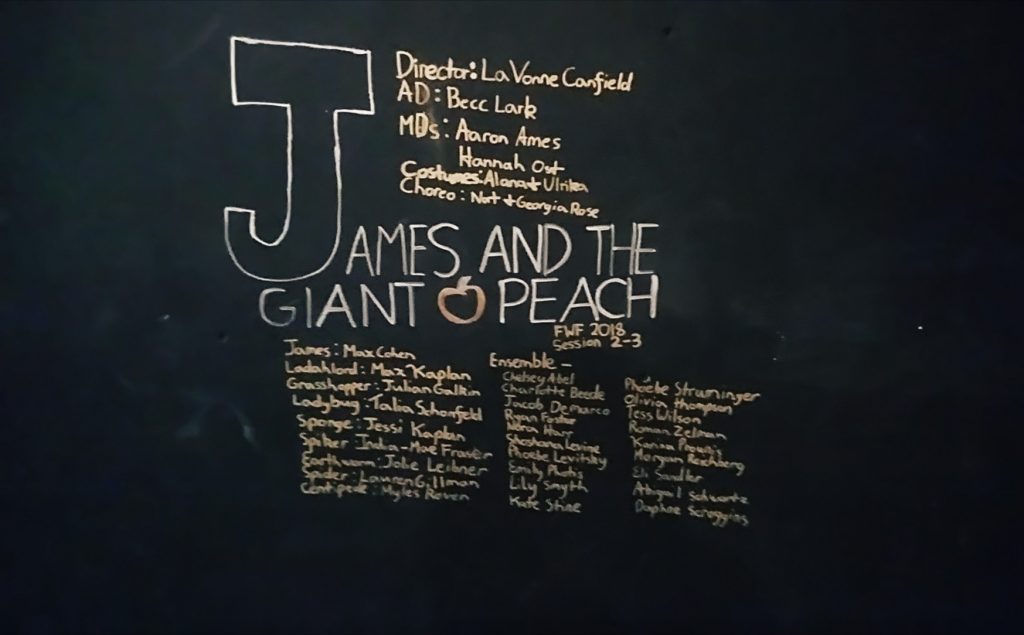 Director: LaVonne Canfield
AD: Becc Lark
MDs: Aaron Ames
Hannah Ost
Costumes: Alana + Ulrika
Choreo: Nat + Georgia Rose
JAMES AND THE
GIANT PEACH
FWF 2018
Session 2-3
James: Max Cohen
Ladahlord: Max Kaplan
Grasshopper: Julian Galkin
Ladybug: Talia Schonfeld
Sponge: Jessi Kaplan
Spiker India-Mae Fraser
Earthworm: Jake Leibner
Spider: Lauren Gillman
Centipede: Myles Raven
Ensemble -
Chelsey Abel
Charlotte Beede
Jacob Demarco
Ryan Foster
Nora Harr
Shoshana Levine
Phoebe Levitsky
Emily
Lily Smyth
Kate Stine
Phoebe Strauninger
Olivia Thompson
Tess Wilson
Ronan Zelman
Morgan Reichberg
Eli Sandler
Abigail Schwartz
Daphne Scroggins